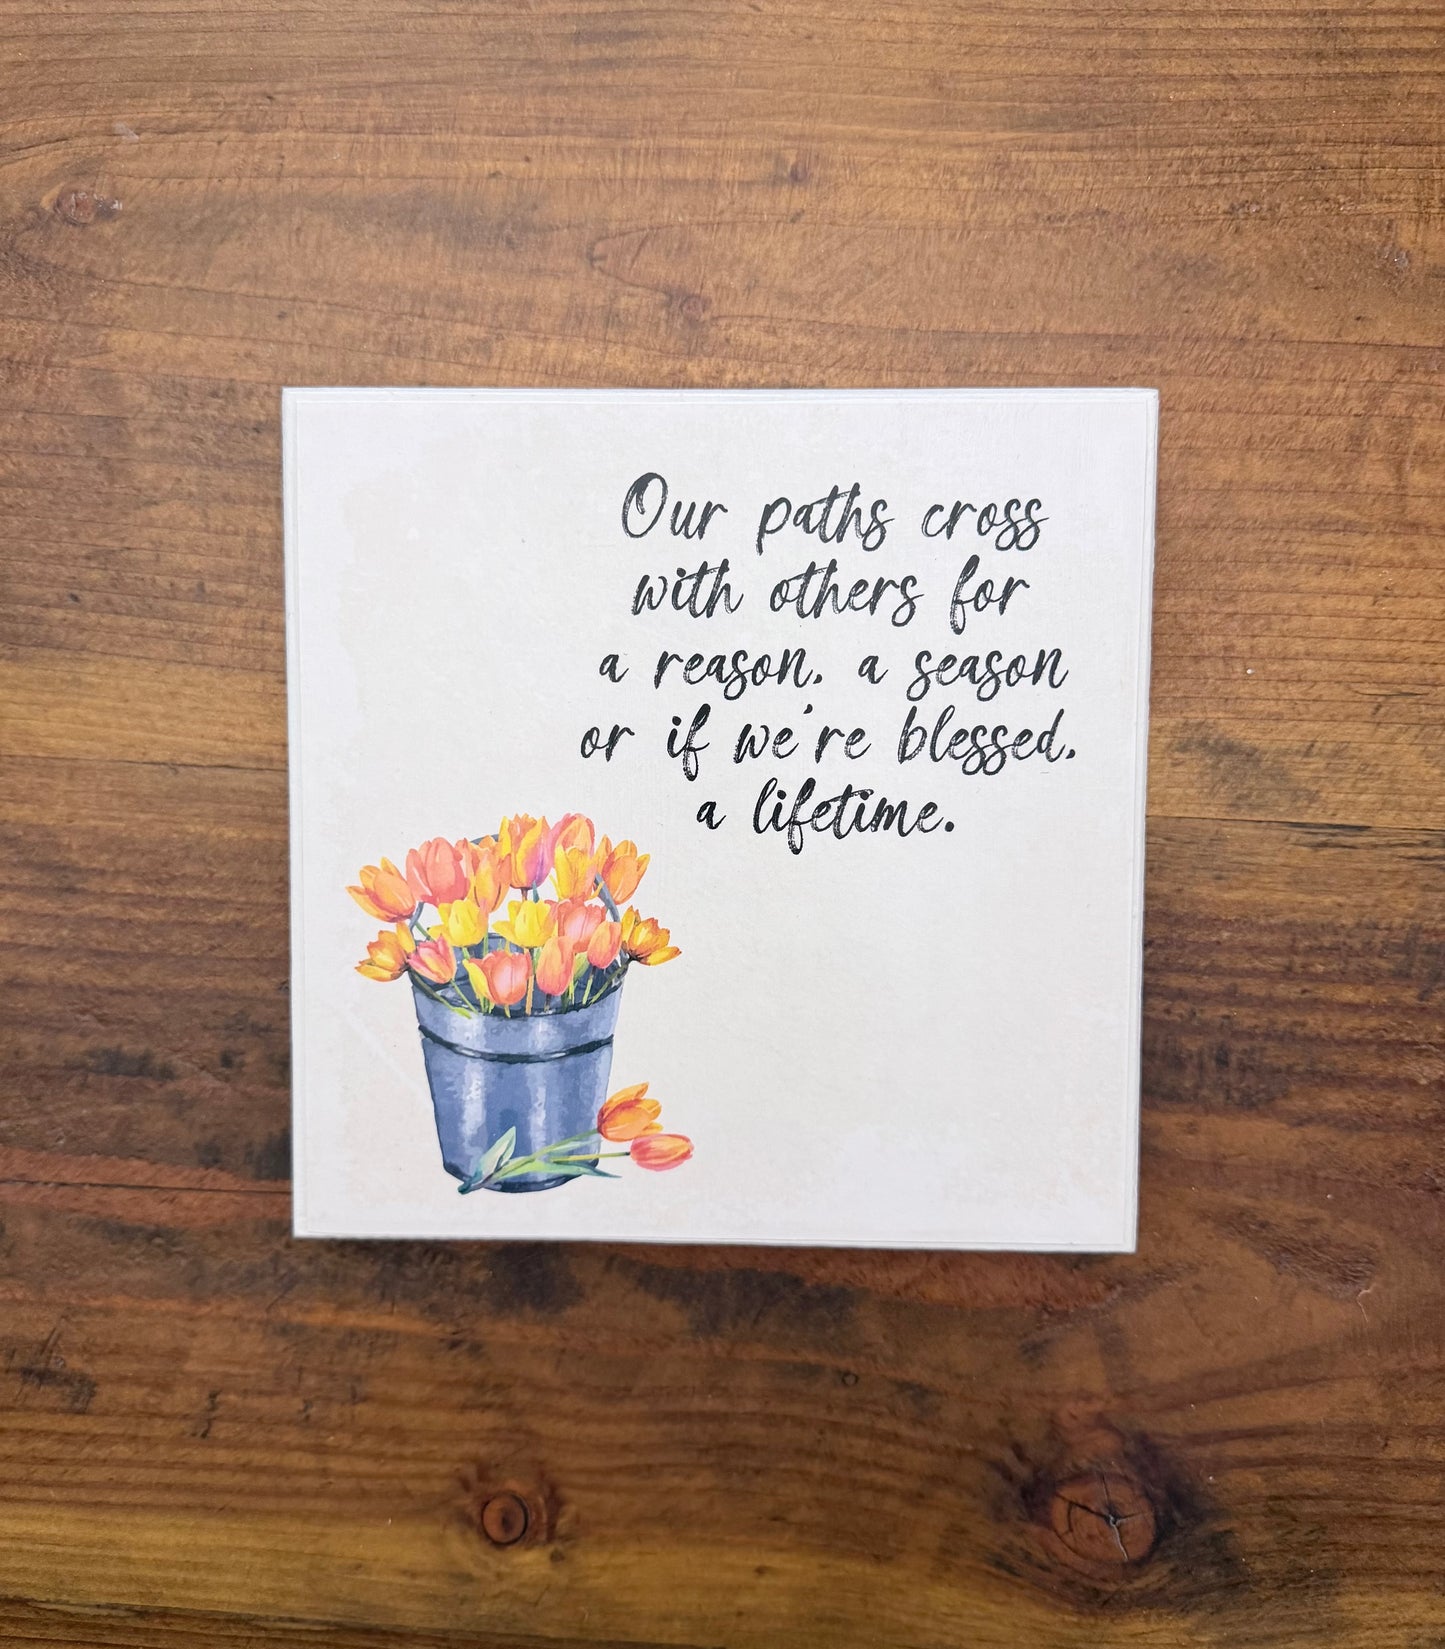 Our paths cross
with others for
a reason, a season
or if we're blessed,
a lifetime.